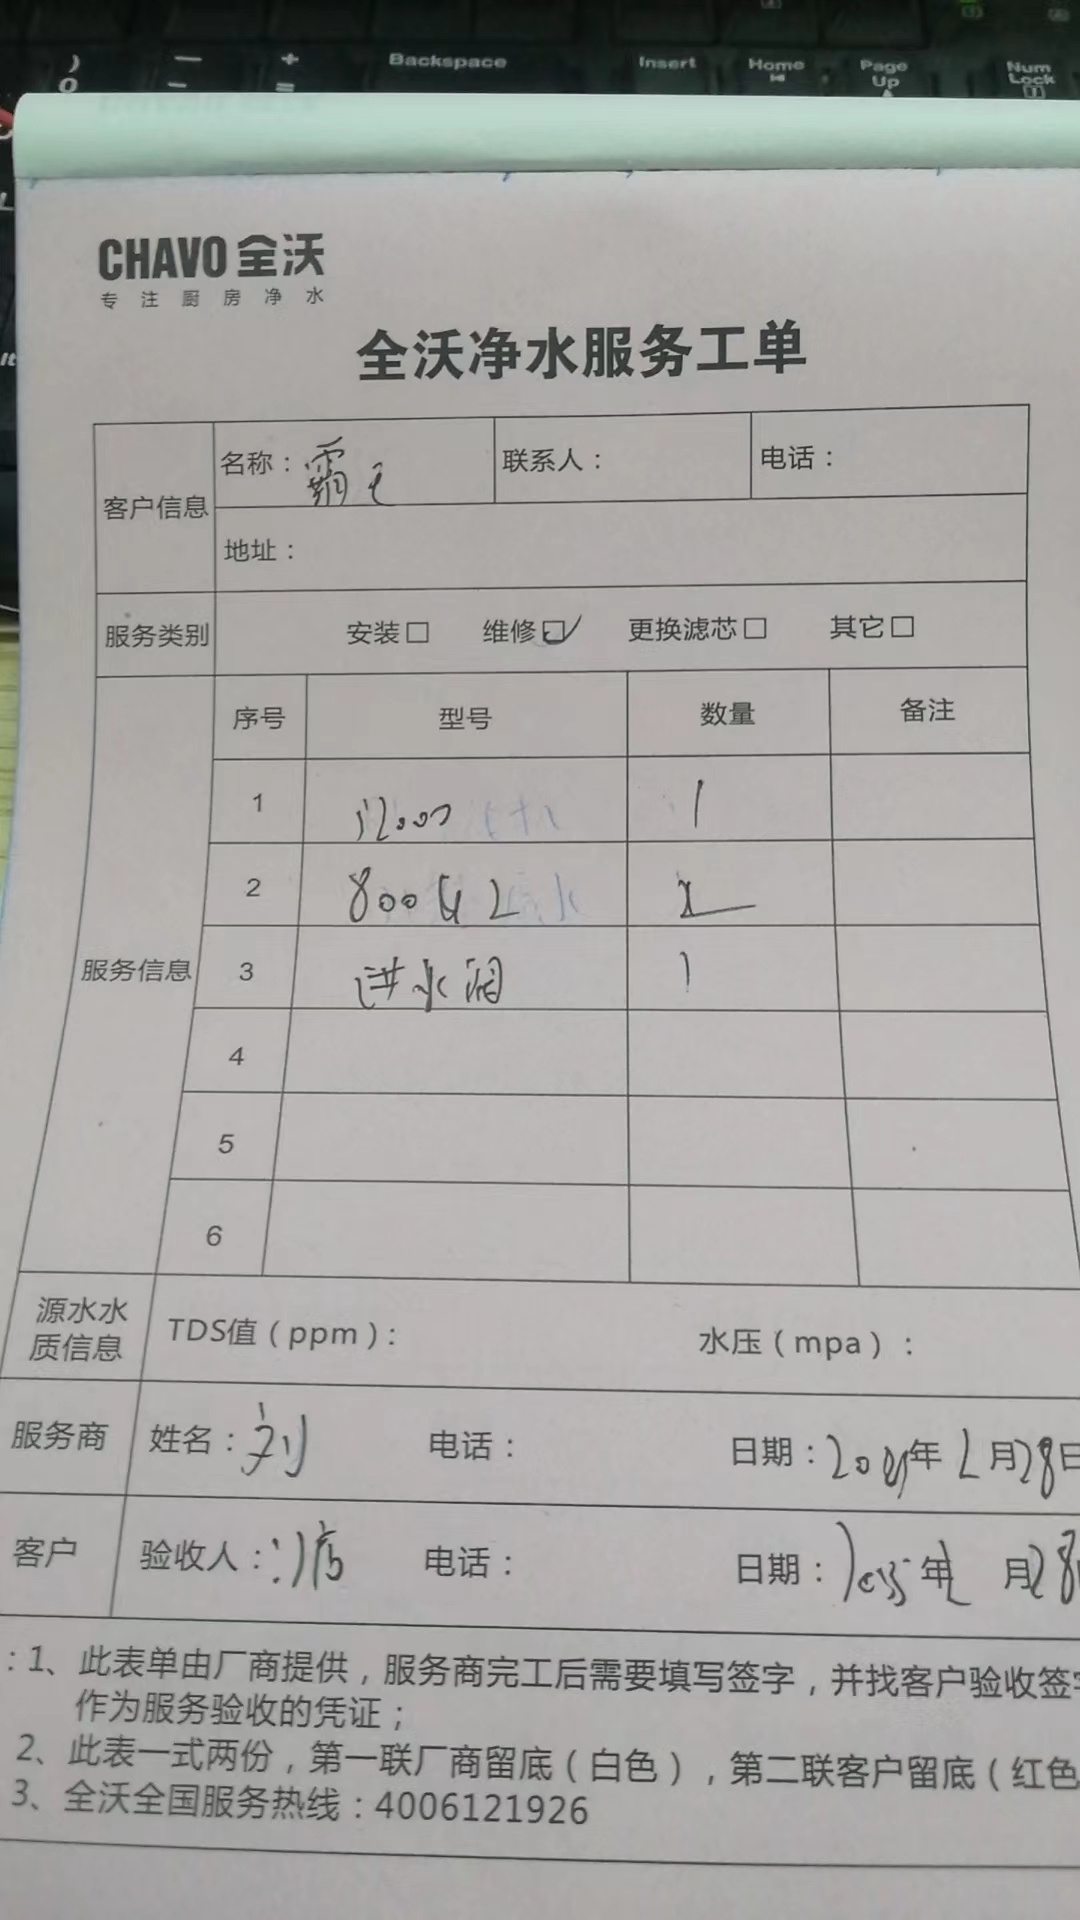 )
0
—
-
+
=
Backspace
Insert
Home
Page
Up
Num
Lock
CHAVO 全沃
专注厨房净水
全沃净水服务工单
客户信息
名称：霸王
联系人：
电话：
地址：
服务类别
安装□ 维修☑ 更换滤芯□ 其它□
服务信息
序号 型号 数量 备注
1 1
2 800G
3 进水阀 1
4
5
6
源水水
质信息
TDS值（ppm）： 水压（mpa）：
服务商 姓名：刘 电话： 日期： 年 2月28日
客户 验收人： 电话： 日期： 年 月28
：1、此表单由厂商提供，服务商完工后需要填写签字，并找客户验收签
作为服务验收的凭证；
2、此表一式两份，第一联厂商留底（白色），第二联客户留底（红色
3、全沃全国服务热线：4006121926